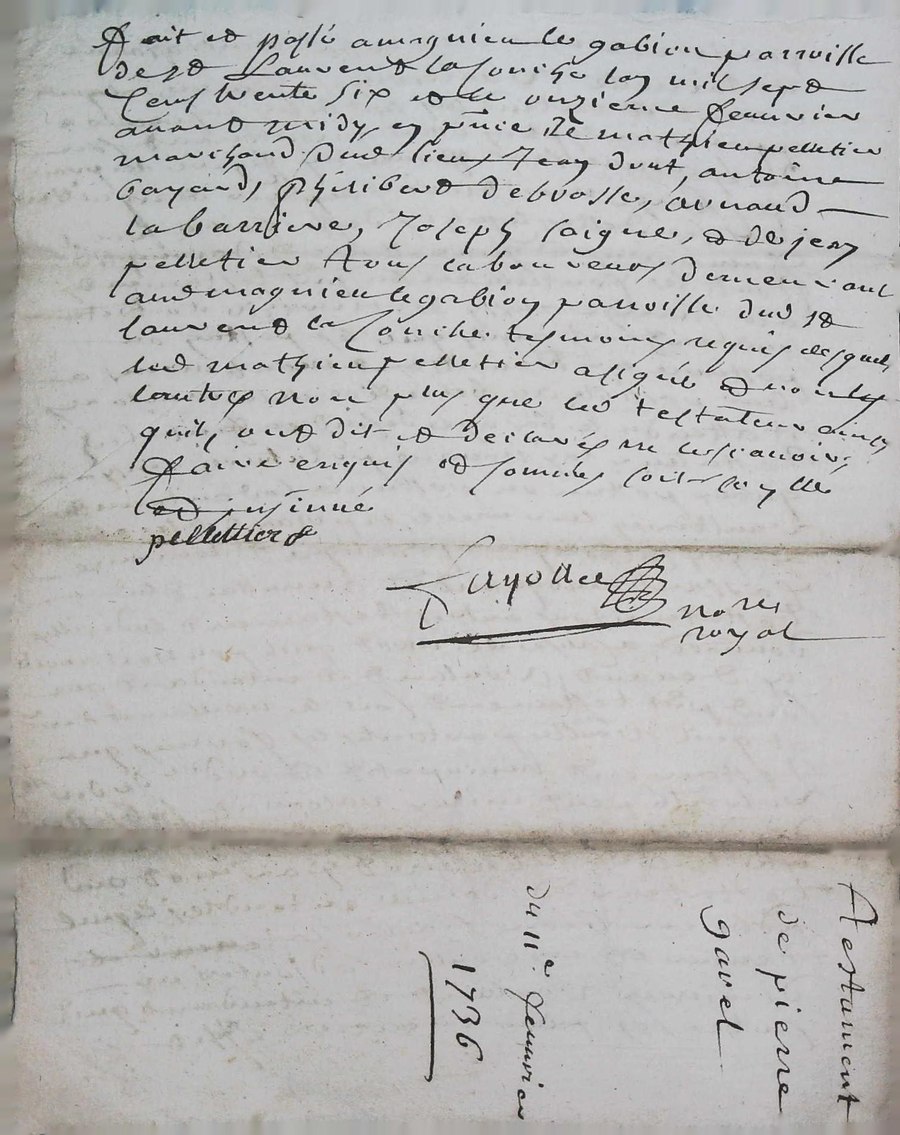 fait et passé a magnieu le gabion parroisse
de st Laurend la Conche lan mil sept
cens trente six et le onzieme feuvrier
avand midy en pnce de mathieu pelletier
marchand dud lieu, Jean dut, antoine
bayard, philibert debrosse, arnaud
labarriere, Joseph saigne, & de jean
pelletier tous laboureurs demeurant
aud magnieu le gabion parroisse dud st
laurend la Conche tesmoins requis desquels
led mathieu pelletier a signé & non les
autres non plus que led testateur ainsy
quils ond dit et declarés ne le scavoir
faire enquis et sommés soit
et insinué
pelletier
Fayolle no.re
royal
Testament
de pierre
gavel
du 11e feuvrier
1736